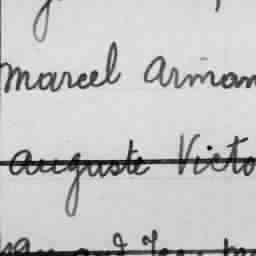 Marcel Arman
Auguste Victo